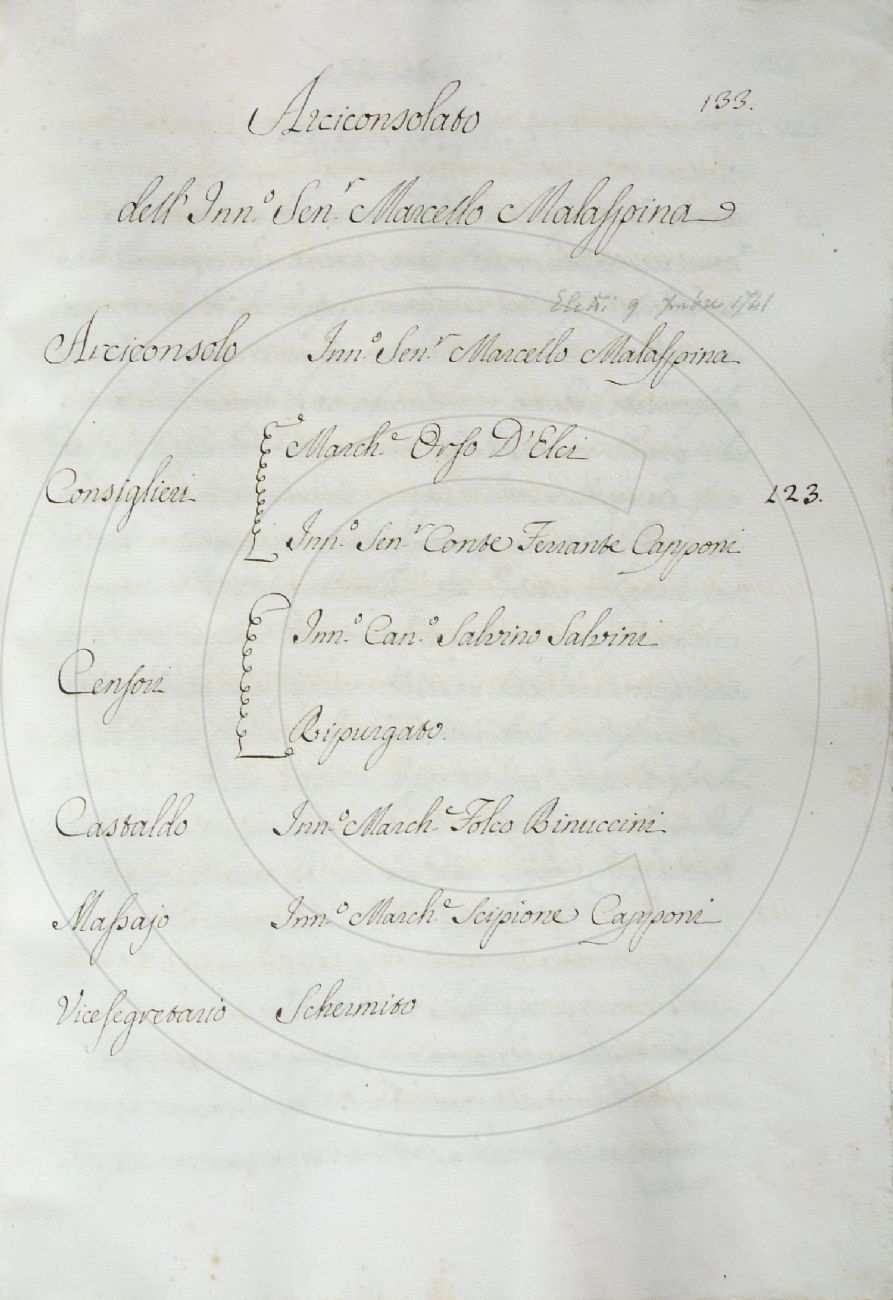 133.
Arciconsolato
dell' Inn.º Sen.ʳ Marcello Malaspina
Eletti 9 1741
Arciconsolo Inn.º Sen.ʳ Marcello Malaspina
March.ᵉ Orso D'Elci
Consiglieri
123.
Inn.º Sen.ʳ Conte Ferrante Capponi
Inn.º Can.º Salvino Salvini
Censori
Ripurgato.
Castaldo Inn.º March.ᵉ Folco Rinuccini
Massajo Inn.º March.ᵉ Scipione Capponi
Vicesegretario Schermito